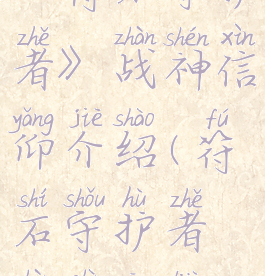 zhě zhàn shén xìn
者》 战神信
yǎng jiè shào fú
仰介绍(符
shí shǒu hù zhě
石守护者